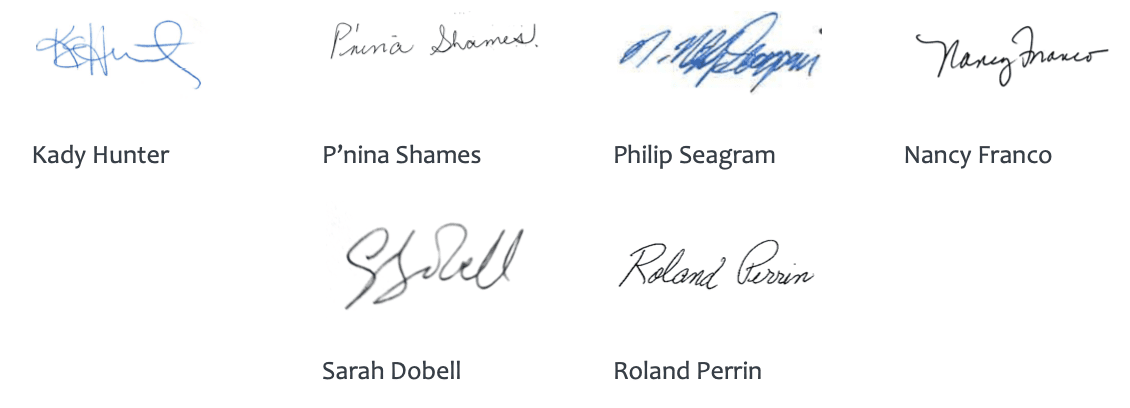 P'nina Shames. Nancy Franco
Kady Hunter P’nina Shames Philip Seagram Nancy Franco
Roland Perrin
Sarah Dobell Roland Perrin